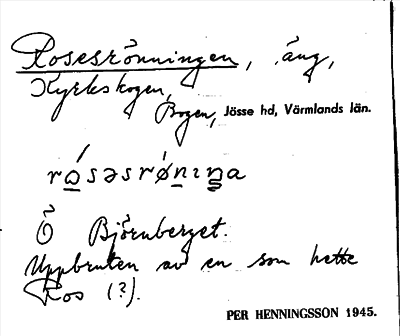 Rosesrönningen, äng,
Kyrkskogen,
Bogen, Jösse hd, Värmlands län.
rọ́səsrǿnıŋa
Ö Björnberget.
Uppbruten av en som hette
Ros (?).
PER HENNINGSSON 1945.